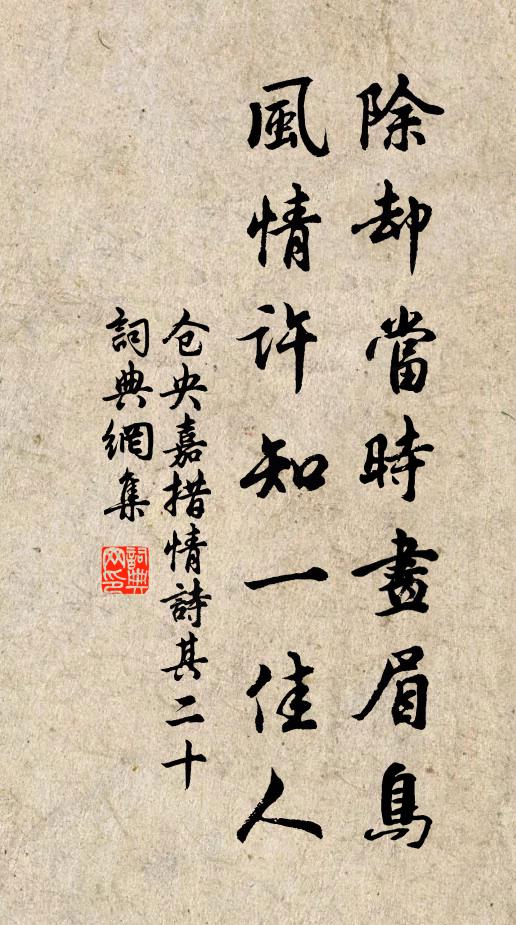 除却當時畫眉鳥
風情許知一佳人
仓央嘉措情詩其二十
詞典網集
詞典網印